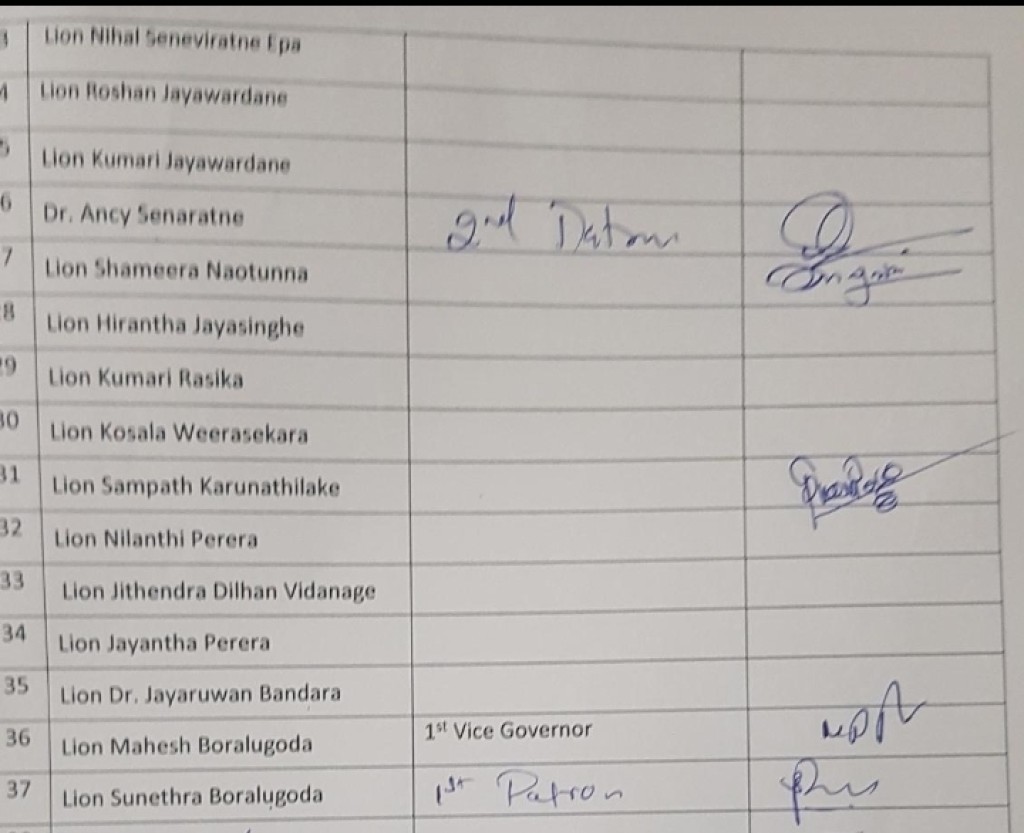 3 Lion Nihal Seneviratne Epa
4 Lion Roshan Jayawardane
5 Lion Kumari Jayawardane
6 Dr. Ancy Senaratne 2nd Patron
7 Lion Shameera Naotunna
8 Lion Hirantha Jayasinghe
29 Lion Kumari Rasika
30 Lion Kosala Weerasekara
31 Lion Sampath Karunathilake
32 Lion Nilanthi Perera
33 Lion Jithendra Dilhan Vidanage
34 Lion Jayantha Perera
35 Lion Dr. Jayaruwan Bandara
36 Lion Mahesh Boralugoda 1st Vice Governor
37 Lion Sunethra Boralugoda 1st Patron